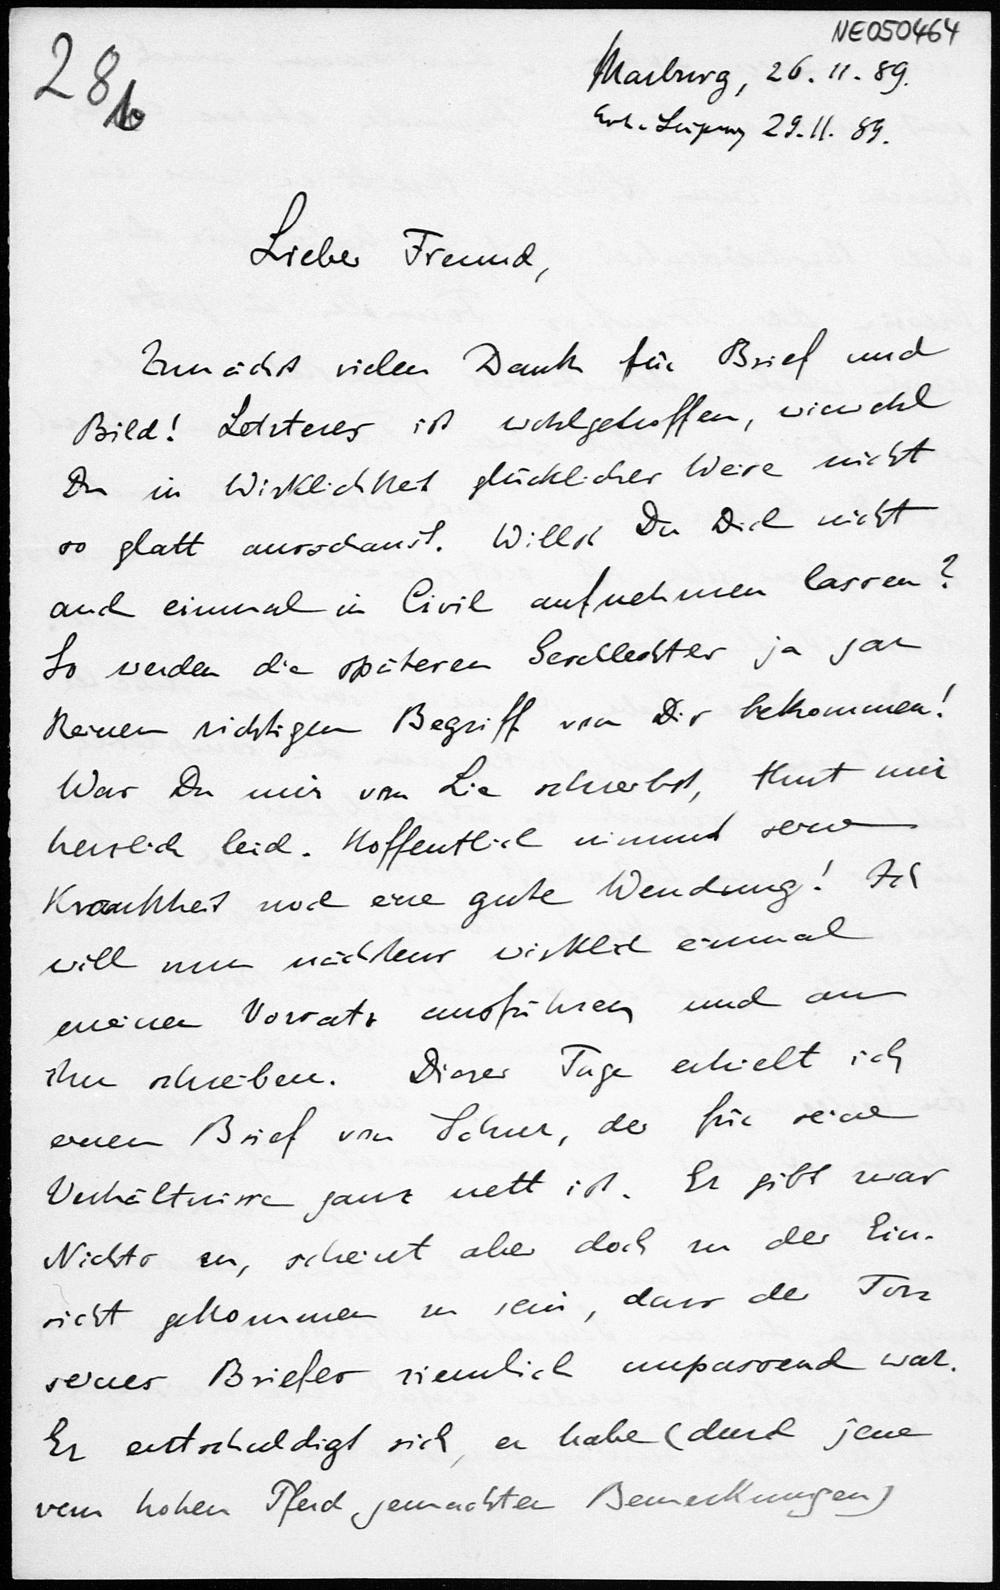 NE050464
28b
Marburg, 26.11.89.
Erh. Leipzig 29.11.89.
Lieber Freund,
Zunächst vielen Dank für Brief und
Bild! Letzteres ist wohlgetroffen, wiewohl
Du in Wirklichkeit glücklicher Weise nicht
so glatt ausschaust. Willst Du Dich nicht
auch einmal in Civil aufnehmen lassen?
So werden die späteren Geschlechter ja gar
keinen richtigen Begriff von Dir bekommen!
Was Du mir von Lie schreibst, thut mir
herzlich leid. Hoffentlich nimmt seine
Krankheit noch eine gute Wendung! Ich
will nun nächstens wirklich einmal
meinen Vorsatz ausführen und an
ihn schreiben. Dieser Tage erhielt ich
einen Brief von Schur, der für seine
Verhältnisse ganz nett ist. Er gibt zwar
Nichts zu, scheint aber doch zu der Ein-
sicht gekommen zu sein, dass der Ton
seines Briefes ziemlich unpassend war.
Er entschuldigt sich, er habe (durch jene
vom hohen Pferd gemachten Bemerkungen)